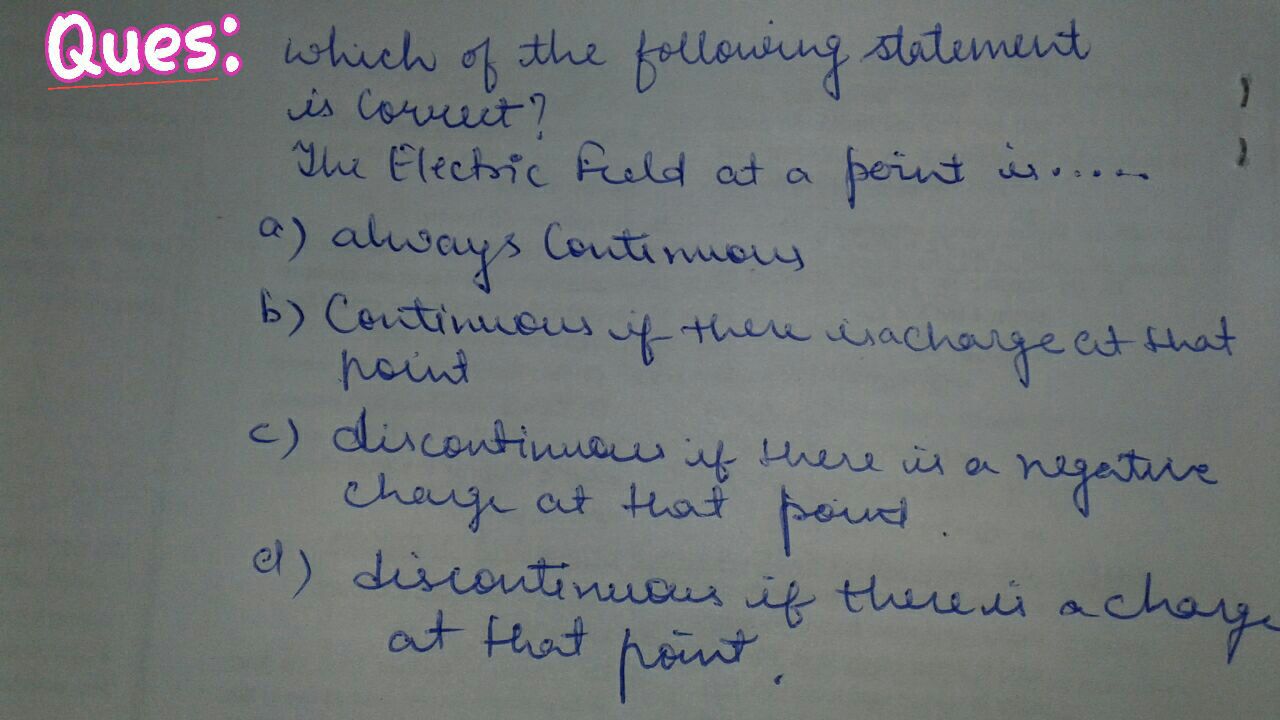 Ques: which of the following statement
is correct?
The Electric Field at a point is.....
a) always Continuous
b) Continuous if there is a charge at that
point
c) discontinuous if there is a negative
charge at that point.
d) discontinuous if there is a charge
at that point.